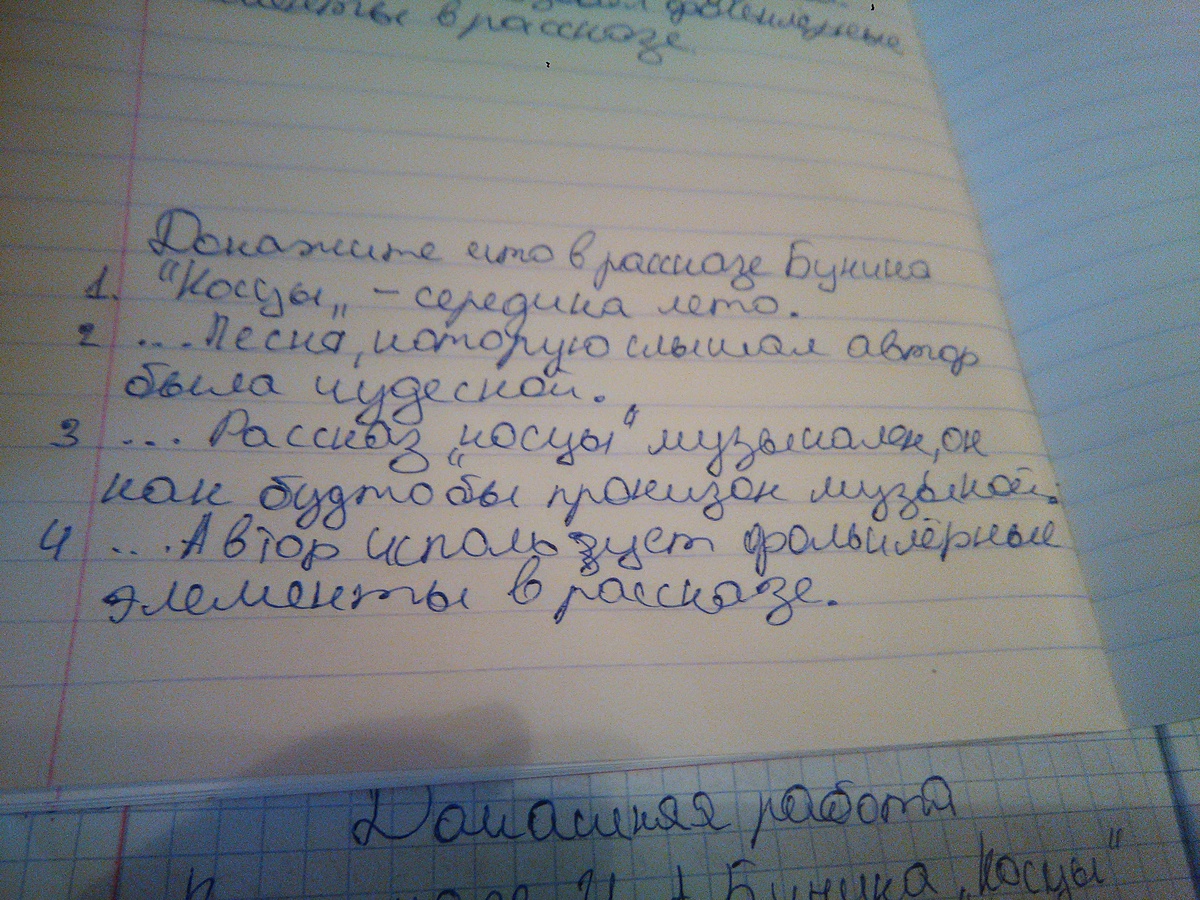 фольклерные
элементы в рассказе
Докажите что в рассказе Бунина
1. "Косцы„ - середина лето.
2 ... Песня, которую слышал автор
была чудесной.
3 ... Рассказ „косцы" музыкален, он
как будто бы пронизан музыкой.
4 ... Автор использует фольклёрные
элементы в рассказе.
Домашняя работа
Бунина „Косцы"